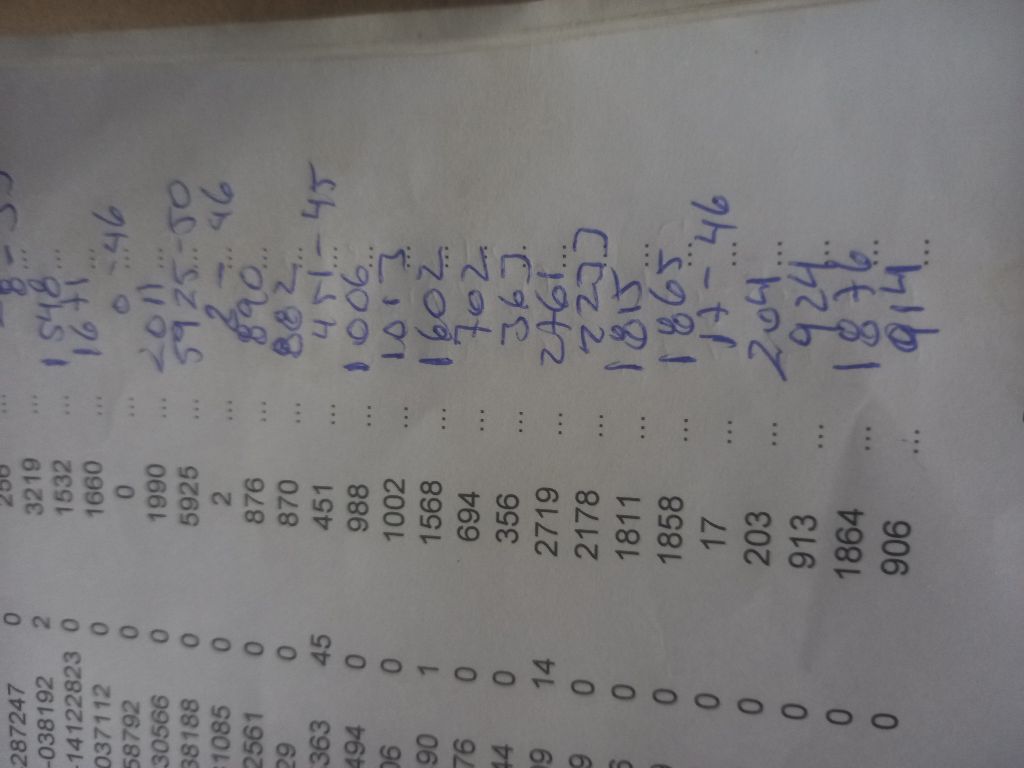 287247 0 256 ...
-038192 2 3219 ...
-14122823 0 1532 ... 1548 ...
037112 0 1660 ... 1671 ...
58792 0 0 ... 0 - 46 ...
30566 0 1990 ... 2011 ...
38188 0 5925 ... 5925 - 50 ...
31085 0 2 ... 2 - 46 ...
2561 0 876 ... 890 ...
29 0 870 ... 882 ...
363 45 451 ... 451 - 45 ...
494 0 988 ... 1006 ...
06 0 1002 ... 1013 ...
90 1 1568 ... 1602 ...
76 0 694 ... 702 ...
44 0 356 ... 363 ...
09 14 2719 ... 2761 ...
9 0 2178 ... 2223 ...
6 0 1811 ... 1815 ...
0 1858 ... 1865 ...
0 17 ... 17 - 46 ...
0 203 ... 204 ...
0 913 ... 924 ...
0 1864 ... 1876 ...
0 906 ... 914 ...